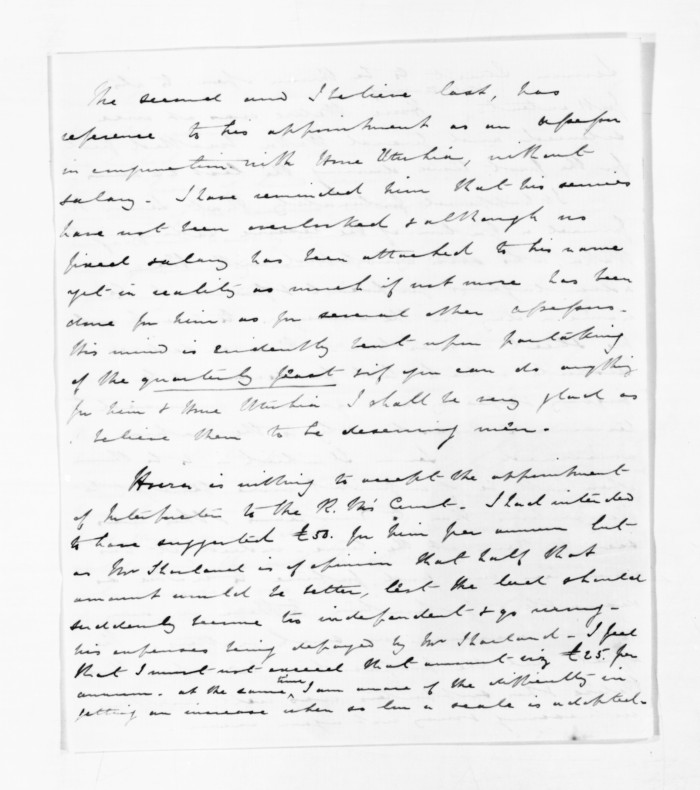 The second and I believe last, has
reference to his appointment as an assessor
in conjunction with Hone Uteuhia, without
salary. I have reminded him that his services
have not been overlooked & although no
fixed salary has been attached to his name
yet in reality as much if not more has been
done for him as for several other assessors.
His mind is evidently bent upon partaking
of the quarterly feast & if you can do anything
for him & Hone I shall be very glad as
I believe them to be deserving men.
is willing to accept the appointment
of Interpreter to the R. M's Court. I had intended
to have suggested £50. for him per annum but
as Mr Sharland is of opinion that half that
amount would be better, lest the lad should
suddenly become too independent & go wrong -
his expenses being defrayed by Mr Sharland - I feel
that I must not exceed that amount viz £25. per
annum. at the same time, I am aware of the difficulty in
getting an increase when so low a scale is adopted.